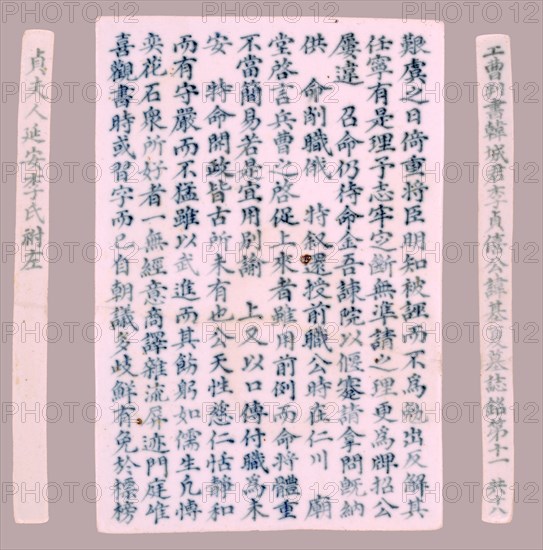 工曹判書韓城君李貞僖公諱基夏墓誌銘第十一 共十八
艱虞之日倚重將臣明知被誣而不爲勉出反解其
任寧有是理予志牢定斷無準請之理更爲牌招公
屢違 召命仍待命金吾諫院以偃蹇請拿問旣納
供 命削職俄 特敍還授前職公時在仁川 廟
堂啓言兵曹之啓促上來者雖用前例而命將體重
不當簡易若是宜用別諭 上又以口傳付職爲未
安 特命開政皆古所未有也公天性慈仁恬靜和
而有守嚴而不猛雖以武進而其飭躬如儒生凡博
奕花石衆所好者一無經意商譯雜流屛迹門庭唯
喜觀書時或習字而已自朝議多歧鮮有免於標榜
貞夫人延安李氏祔左
PHOTO